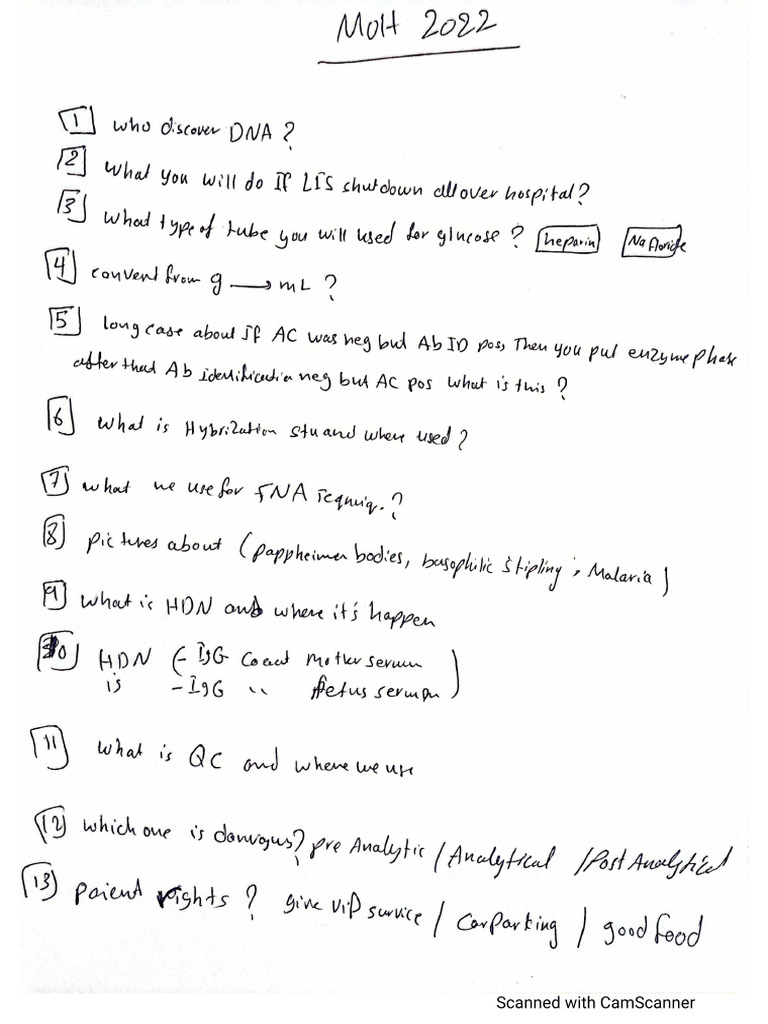 MOH 2022
1 who discover DNA?
2 What you will do If LIS shutdown all over hospital?
3 What type of tube you will used for glucose? heparin Na floride
4 convert from g → mL ?
5 long case about if AC was neg but Ab ID pos, Then you put enzyme phase
after that Ab identification neg but AC pos what is this?
6 what is Hybrization and where used?
7 what we use for FNA Tequniq.?
8 pictures about (pappheimer bodies, basophilic stipling, Malaria)
9 what is HDN and where it's happen
10 HDN (- IgG Coat Mother serum
is - IgG " fetus serum)
11 what is QC and where we use
12 which one is dangous? pre Analytic / Analytical / Post Analytical
13 paient rights? give vip survice / Car Parking / good food
Scanned with CamScanner